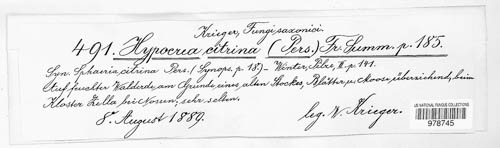 Krieger, Fungi saxonici.
491. Hypocrea citrina (Pers.) Fr. Summ. p. 185.
Syn. Sphaeria citrina Pers. (Synops. p. 18). Winter, Pilze, II. p. 141.
Auf feuchter Walderde, am Grunde eines alten Stockes, Blätter u. Moose überziehend, beim
Kloster Zella bei Nossen, sehr selten.
8. August 1889. leg. W. Krieger.
US NATIONAL FUNGUS COLLECTIONS
978745